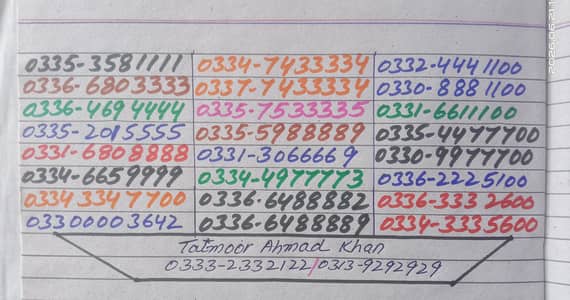 0335-3581111 0334-7433334 0332-4441100
0336-6803333 0337-7433334 0330-8881100
0336-4694444 0335-7533335 0331-6611100
0335-2015555 0335-5988889 0335-4477700
0331-6808888 0331-3066669 0330-9977700
0334-6659999 0334-4977773 0336-2225100
0334 3347700 0336-6488882 0336-333 2600
0330000 3642 0336-6488889 0334-3335600
Tatmoor Ahmad Khan
0333-2332122/0313-9292929